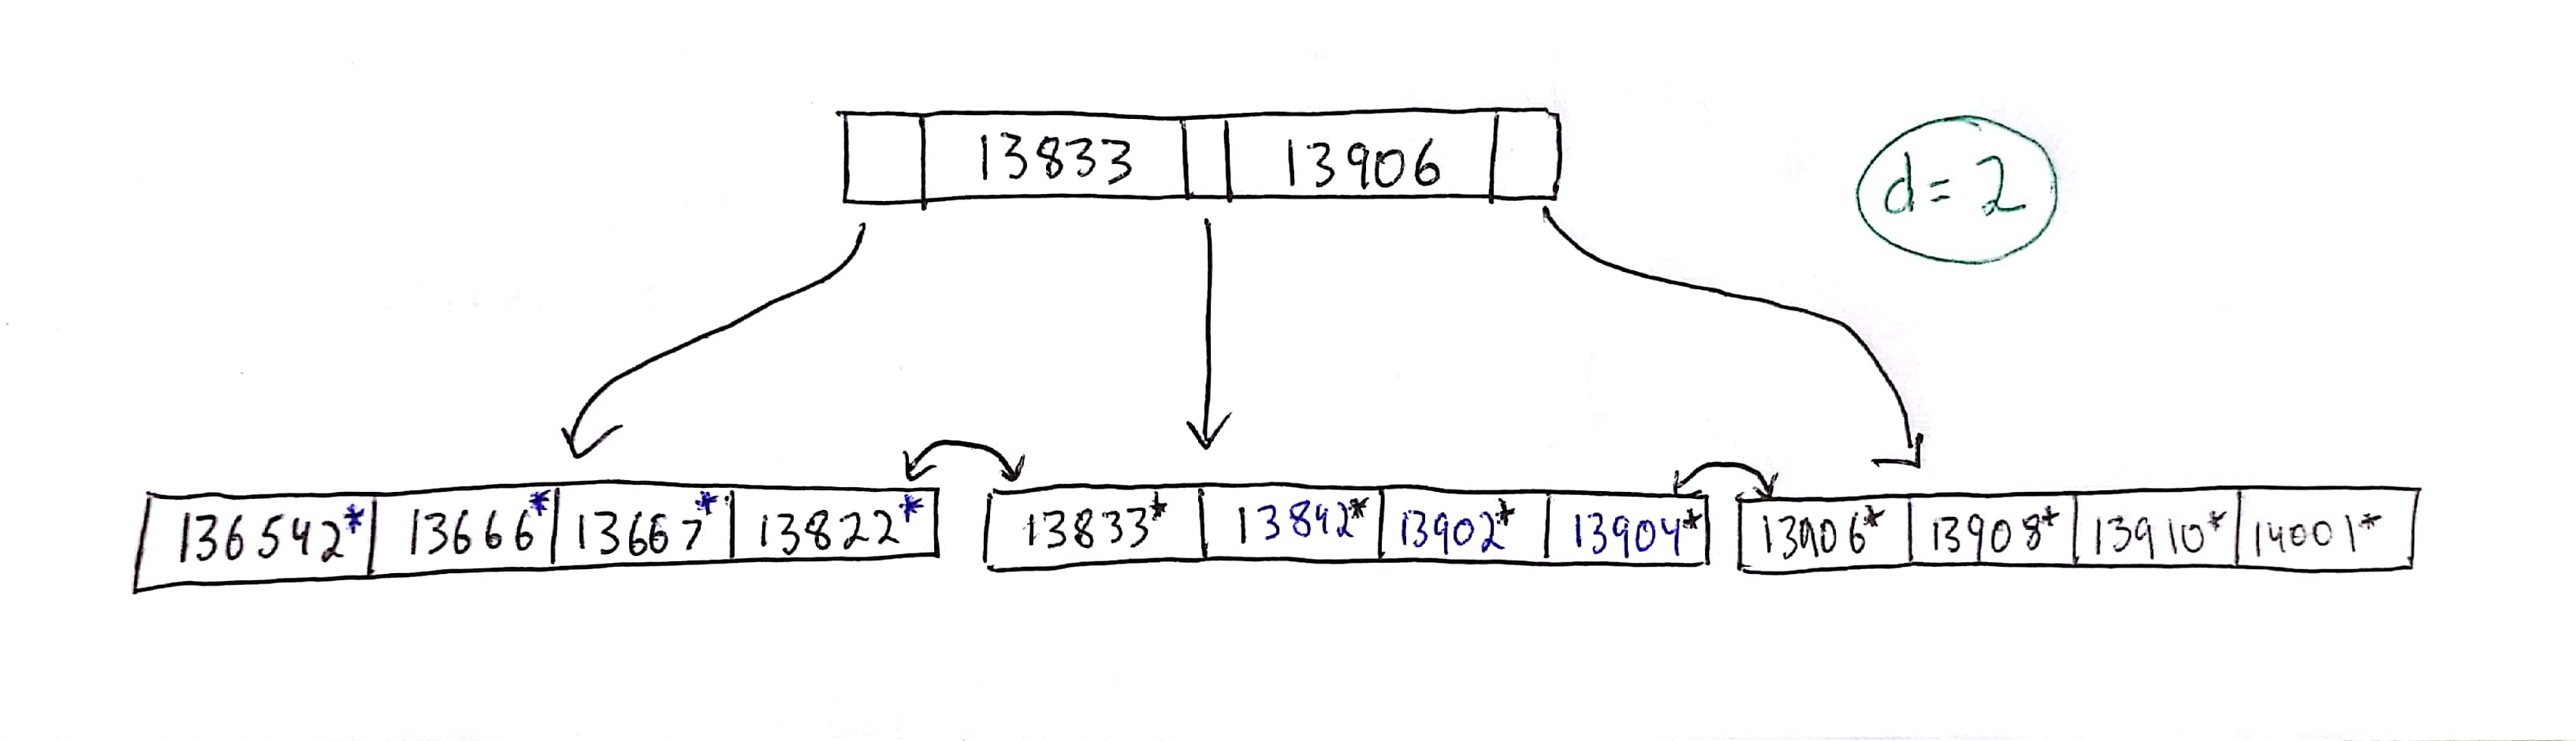 13833 13906
d = 2
136542* 13666* 13667* 13822* 13833* 13892* 13902* 13904* 13906* 13908* 13910* 14001*